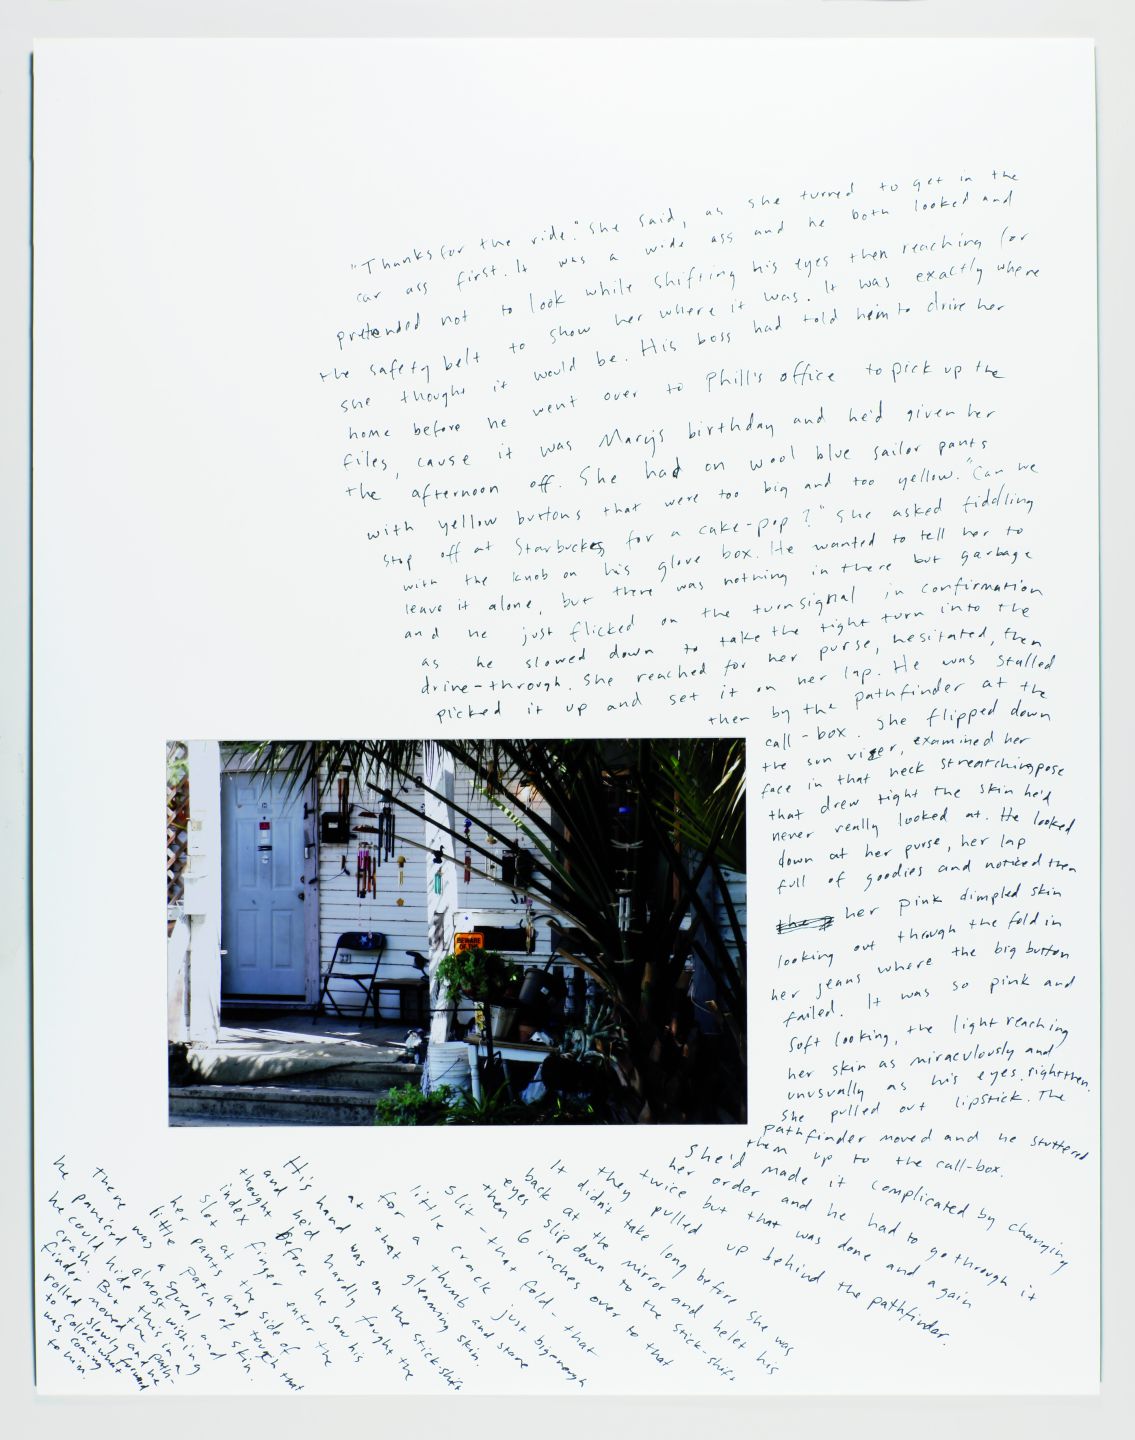 "Thanks for the ride." She said, as she turned to get in the
car ass first. It was a wide ass and he both looked and
pretended not to look while shifting his eyes then reaching for
the safety belt to show her where it was. It was exactly where
she thought it would be. His boss had told him to drive her
home before he went over to Phill's office to pick up the
files, cause it was Mary's birthday and he'd given her
the afternoon off. She had on wool blue sailor pants
with yellow buttons that were too big and too yellow. "Can we
stop off at Starbuckes for a cake-pop?" She asked fiddling
with the knob on his glove box. He wanted to tell her to
leave it alone, but there was nothing in there but garbage
and he just flicked on the turnsignal in confirmation
as he slowed down to take the tight turn into the
drive-through. She reached for her purse, hesitated, then
picked it up and set it on her lap. He was stalled
then by the pathfinder at the
call-box. She flipped down
the sun vizer, examined her
face in that neck streatching pose
that drew tight the skin he'd
never really looked at. He looked
down at her purse, her lap
full of goodies and noticed then
her pink dimpled skin
looking out through the fold in
her jeans where the big button
failed. It was so pink and
soft looking, the light reaching
her skin as miraculously and
unusually as his eyes, right then.
She pulled out lipstick. The
pathfinder moved and he stuttered
them up to the call-box.
She'd made it complicated by changing
her order and he had to go through it
twice but that was done and again
they pulled up behind the pathfinder.
It didn't take long before she was
back at the mirror and he let his
eyes slip down to the stick-shift
then 6 inches over to that
slit - that fold - that
little crack just big enough
for a thumb and
at that gleaming skin.
His hand was on the stick-shift
and he'd hardly fought the
thought before he saw his
index finger enter the
slot at the side of
her little pants and touch that
patch of skin.
There was a squeal and
he panicked almost wishing
he could hide this in a
crash. But the path-
finder moved and he
rolled slowly forward
to collect what
was coming
to him.
BEWARE